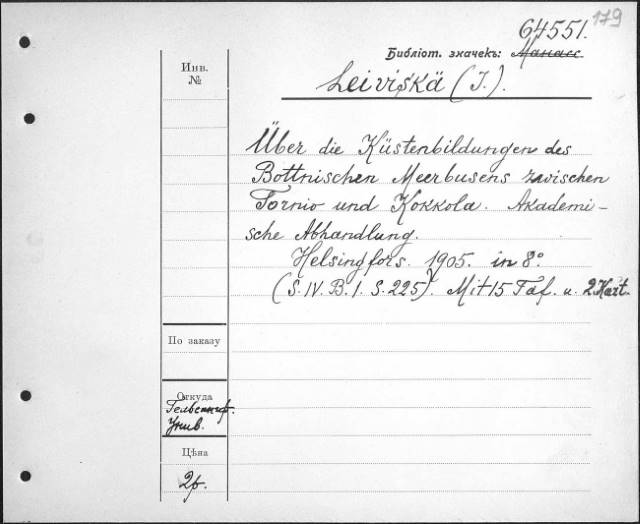 179
64551.
Библіот. значекъ: Манасс
Инв.
№
Leiviskä (I.).
Über die Küstenbildungen des
Bottnischen Meerbusens zwischen
Tornio und Kokkola. Akademi-
sche Abhandlung.
Helsingfors. 1905. in 8º.
(S. IV. B. 1. S. 225). Mit 15 Taf. u. 2 Kart.
По заказу
Откуда
Гельсингф.
Унив.
Цѣна
2р.